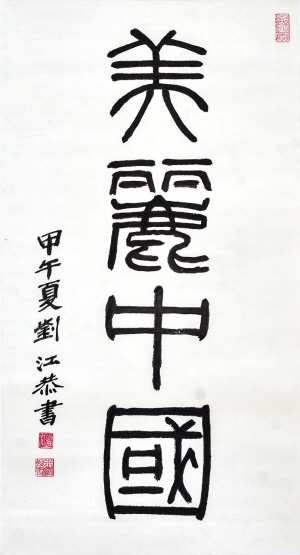 美麗中國
甲午夏劉江恭書